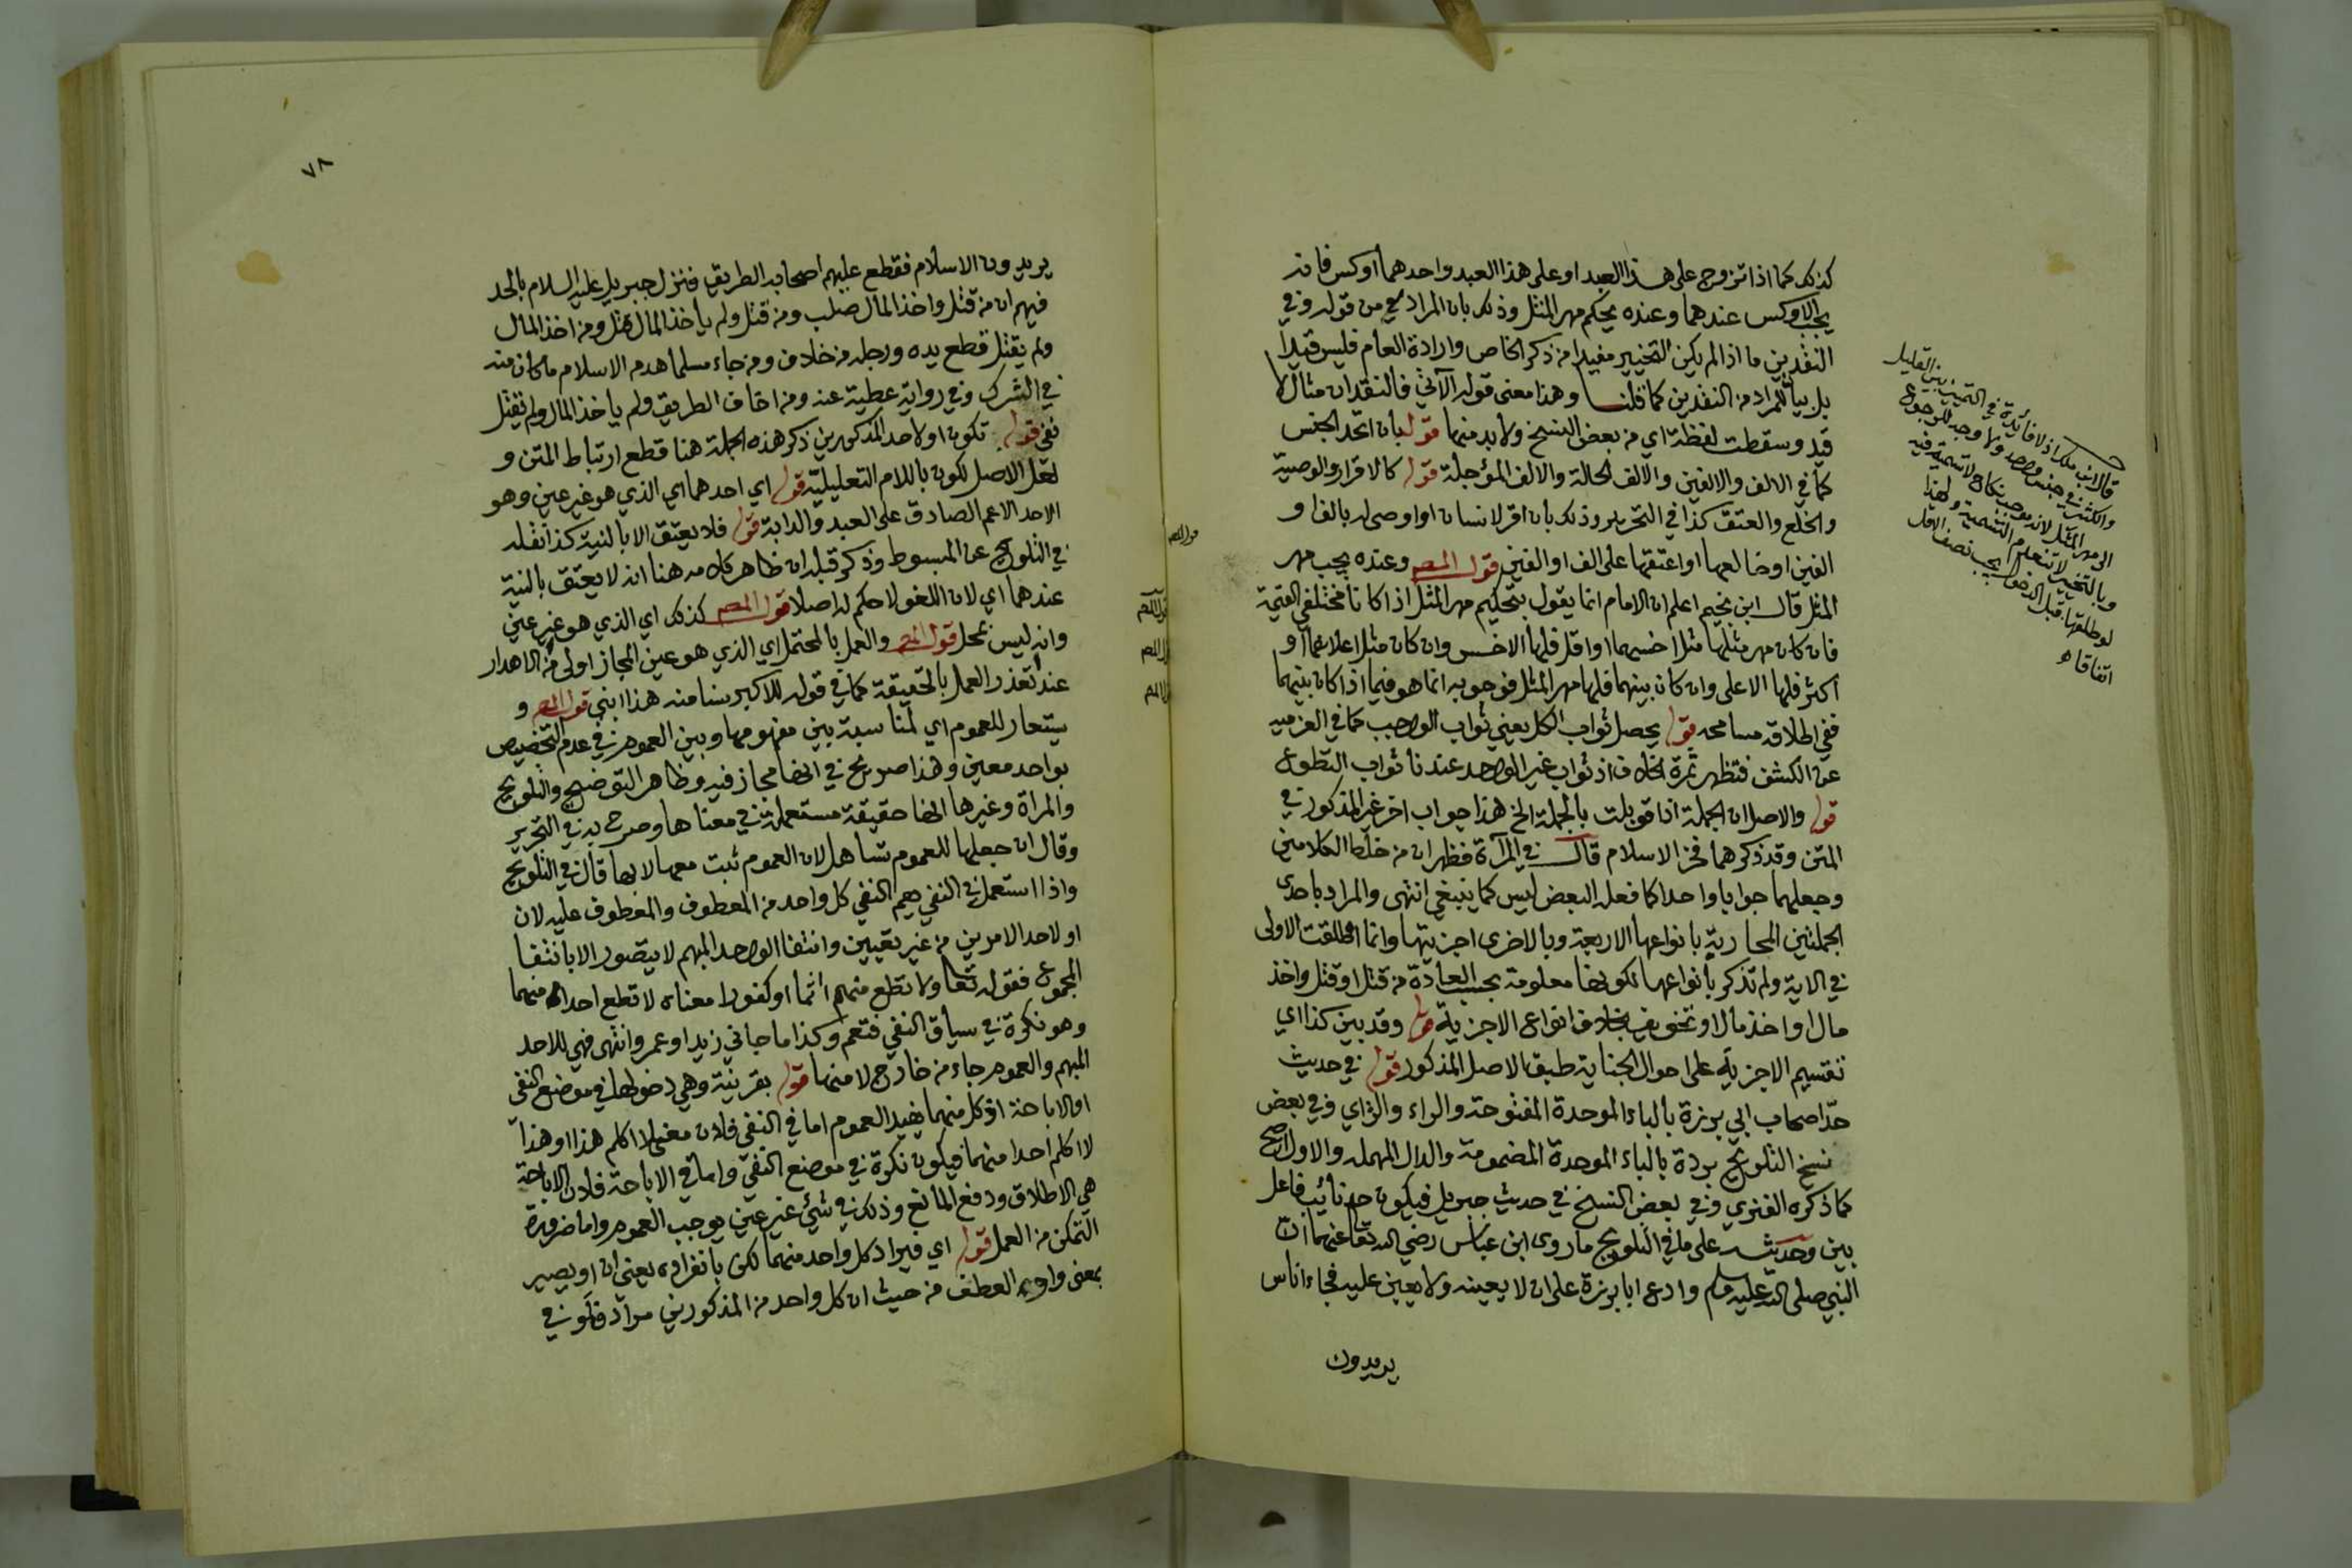 كذلك كما اذا تزوج على هذا العبد او على هذا العبد واحدهما اوكس فانه
يجب الاوكس عندهما وعنده يحكم مهر المثل وذلك بان المراد من قوله وفي
النقدين ما اذا لم يكن التخيير مفيدا من ذكر الخاص وارادة العام فليس قيدا
بل بيانا للمراد من النقدين كما قلنا وهذا معنى قوله الآتي فالنقدان مثال لا
قيد وسقطت لفظة اي من بعض النسخ ولابد منها قوله بان اتحد الجنس
كما في الالف والالفين والالف الحالة والالف المؤجلة قوله كالاقرار والوصية
والخلع والعتق كذا في التحرير وذلك بان اقر لانسان او اوصى له بالف او
الفين او خالعها او اعتقها على الف او الفين قول المصر وعنده يجب مهر
المثل قال ابن نجيم اعلم ان الامام انما يقول بتحكيم مهر المثل اذا كانا مختلفي القيمة
فان كان مهر مثلها مثل اخسهما او اقل فلها الاخس وان كان مثل اعلاهما او
اكثر فلها الاعلى وان كان بينهما فلها مهر المثل فوجوبه انما هو فيما اذا كان بينهما
ففي اطلاقه مسامحه قوله يحصل ثواب الكل يعني ثواب الواجب كما في العزميه
عن الكشف فتظهر ثمرة الخلاف اذ ثواب غير الواحد عندنا ثواب التطوع
قوله والاصل ان الجملة اذا قوبلت بالجملة الخ هذا جواب اخر غير المذكور في
المتن وقد ذكرهما فخر الاسلام قال في المرآة فظهر ان من خلط الكلامين
وجعلهما جوابا واحدا كما فعله البعض ليس كما ينبغي انتهى والمراد باحدى
الجملتين المحاربة بانواعها الاربعة وبالاخرى اجزيتها وانما اطلقت الاولى
في الاية ولم تذكر بانواعها لكونها معلومة بحسب العادة من قتل او قتل واخذ
مال او اخذ مال او تخويف بخلاف انواع الاجزية قوله وقد بين كذا اي
تقسيم الاجزية على احوال الجناية طبق الاصل المذكور قوله في حديث
حد اصحاب ابي برزة بالباء الموحدة المفتوحة والراء والزاي وفي بعض
نسخ التلويح بردة بالباء الموحدة المضمومة والدال المهمله والاول اصح
كما ذكره الفنري وفي بعض النسخ في حديث جبريل فيكون حد نائب فاعل
بين وحديثه على ما في التلويح ما روى ابن عباس رضي الله تعالى عنهما ان
النبي صلى الله عليه وسلم وادع ابا برزة على ان لا يعينه ولا يعين عليه فجاء اناس
يريدون
قال ابن ملك اذ لا فائدة في التخيير بين القليل
والكثير في جنس واحد ولا وجه للرجوع
الى مهر المثل لانه موجب نكاح لا تسمية فيه
وبالتخيير لا تنعدم التسمية ولهذا
لو طلقها قبل الدخول يجب نصف الاقل
اتفاقا اه
٧٨
يريدون الاسلام فقطع عليهم اصحابه الطريق فنزل جبريل عليه السلام بالحد
فيهم ان من قتل واخذ المال صلب ومن قتل ولم يأخذ المال قتل ومن اخذ المال
ولم يقتل قطع يده ورجله من خلاف ومن جاء مسلما هدم الاسلام ما كان منه
في الشرك وفي رواية عطية عنه ومن اخاف الطريق ولم ياخذ المال ولم يقتل
نفي قوله تكون او لاحد المذكورين ذكر هذه الجملة هنا قطع ارتباط المتن و
لعل الاصل لكون باللام التعليلية قوله اي احدهما اي الذي هو غير عين وهو
الاحد الاعم الصادق على العبد والدابة قوله فلا يعتق الا بالنية كذا نقله
في التلويح عن المبسوط وذكر قبله ان ظاهر كلامه هنا انه لا يعتق بالنية
عندهما اي لان اللغو لا حكم له اصلا قول المصر كذلك اي الذي هو غير عين
وانه ليس بمحل قول المصر والعمل بالمحتمل اي الذي هو عين المجاز اولى من الاهدار
عند تعذر العمل بالحقيقة كما في قوله للاكبر سنا منه هذا ابني قول المصر و
يستعار للعموم اي لمناسبة بين مفهومها وبين العموم في عدم التخصيص
بواحد معين وهذا صريح في انها مجاز فيه وظاهر التوضيح والتلويح
والمرآة وغيرها انها حقيقة مستعملة في معناها وصرح به في التحرير
وقال ان جعلها للعموم تساهل لان العموم ثبت معها لا بها قال في التلويح
واذا استعمل في النفي يعم النفي كل واحد من المعطوف والمعطوف عليه لان
او لاحد الامرين من غير تعيين وانتفا الواحد المبهم لا يتصور الا بانتفا
المجموع فقوله تعا ولا تطع منهم اثما او كفورا معناه لا تطع احدا منهما
وهو نكرة في سياق النفي فتعم وكذا ما جاني زيد او عمرو انتهى فهي للاحد
المبهم والعموم جاء من خارج لا منها قوله بقرينة وهي دخولها في موضع النفي
او الاباحة اذ كل منهما يفيد العموم اما في النفي فلان معنى لا اكلم هذا او هذا
لا اكلم احدا منهما فيكون نكرة في موضع النفي واما في الاباحة فلان الاباحة
هي الاطلاق ودفع المانع وذلك في شيء غير عين يوجب العموم واما ضرورة
التمكن من العمل قوله اي فيراد كل واحد منهما لكن بانفراده يعني ان او يصير
بمعنى واو العطف من حيث ان كل واحد من المذكورين مراد فلو في